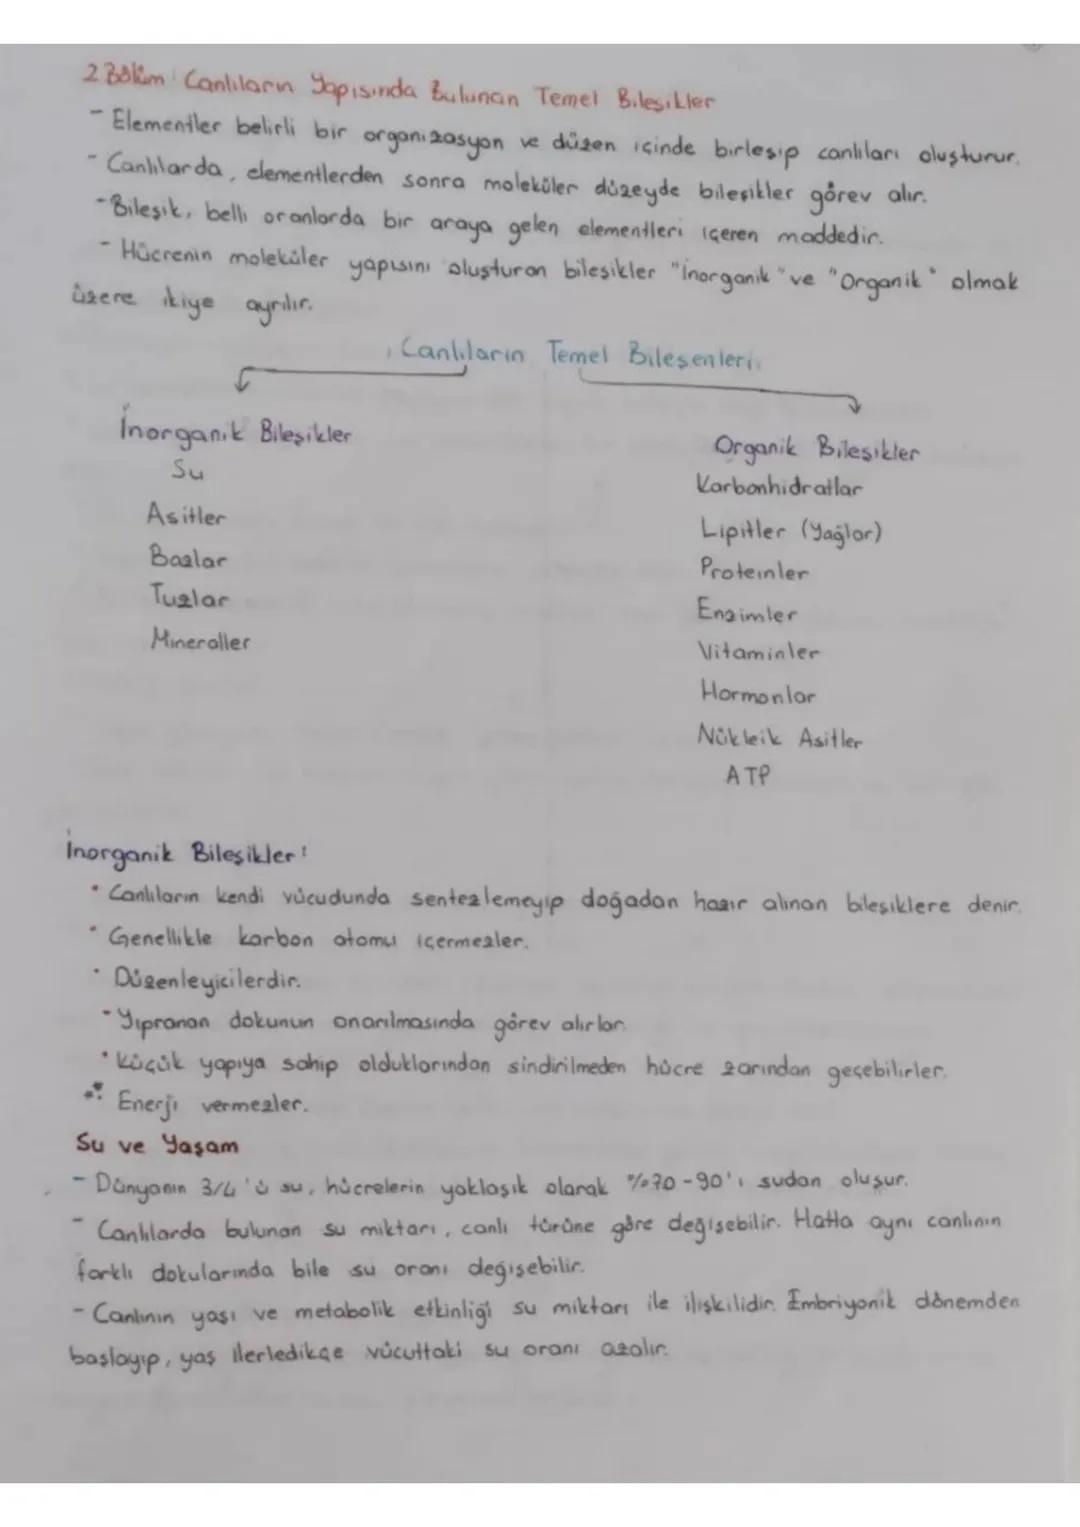 2 Bölüm: Canlıların Yapısında Bulunan Temel Bileşikler
- Elementler belirli bir organizasyon ve düzen içinde birleşip canlıları oluşturur.
- Canlılarda, elementlerden sonra moleküler düzeyde bileşikler görev alır.
- Bileşik, belli oranlarda bir araya gelen elementleri içeren maddedir.
- Hücrenin moleküler yapısını oluşturan bileşikler "İnorganik" ve "Organik" olmak
üzere ikiye ayrılır.
Canlıların Temel Bileşenleri
İnorganik Bileşikler
Su
Asitler
Bazlar
Tuzlar
Mineraller
Organik Bileşikler
Karbonhidratlar
Lipitler (Yağlar)
Proteinler
Enzimler
Vitaminler
Hormonlar
Nükleik Asitler
ATP
İnorganik Bileşikler:
• Canlıların kendi vücudunda sentezlemeyip doğadan hazır alınan bileşiklere denir.
• Genellikle karbon atomu içermezler.
• Düzenleyicilerdir.
• Yıpranan dokunun onarılmasında görev alırlar.
• Küçük yapıya sahip olduklarından sindirilmeden hücre zarından geçebilirler.
• Enerji vermezler.
Su ve Yaşam
- Dünyanın 3/4'ü su, hücrelerin yaklaşık olarak %70-90'ı sudan oluşur.
- Canlılarda bulunan su miktarı, canlı türüne göre değişebilir. Hatta aynı canlının
farklı dokularında bile su oranı değişebilir.
- Canlının yaşı ve metabolik etkinliği su miktarı ile ilişkilidir. Embriyonik dönemden
başlayıp, yaş ilerledikçe vücuttaki su oranı azalır.